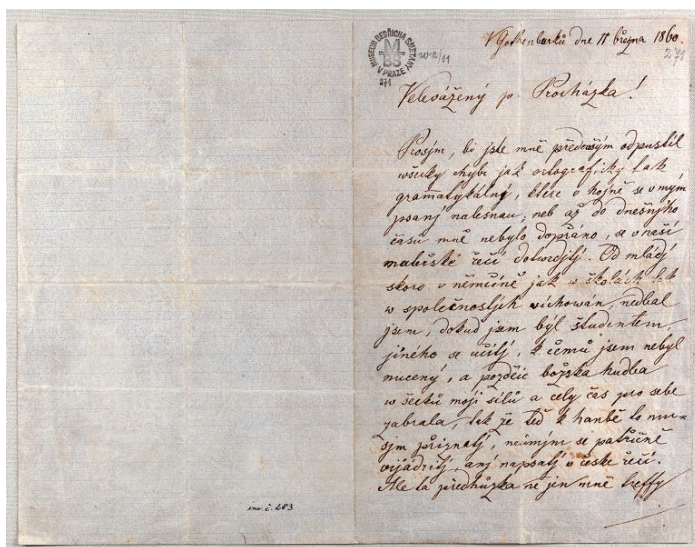 V Gothenburků dne 11 března 1860.
MUSEUM BEDŘICHA SMETANY V PRAZE
MBS
271
271
Velevážený p. Procházka!
Prosjm, by jste mně předewšjm odpustil
wšecky chybi jak ortografický tak
gramatykálný, ktere v hojně se v mým
psanj naleznau, neb až do dnešnjho
času mně nebylo dopřáno, se v naší
mateřské řečí dotwrdjtj. Od mládj
skoro v němčině jak w školách tak
w společnostjch wichowán, nedbal
jsem, dokud jsem býl študentem,
jiného se učitj, k čemů jsem nebyl
nucený, a pozděic božska hudba
wšecků moji silů a cely čas pro sebe
zabrala, tak že teď k hanbě to mu-
sjm přiznatj, neůmjm se patřičně
vijádřitj, anj napsatj v česke řečí.
Ale ta předhůzka ne jen mně treffy
inv. č. 283